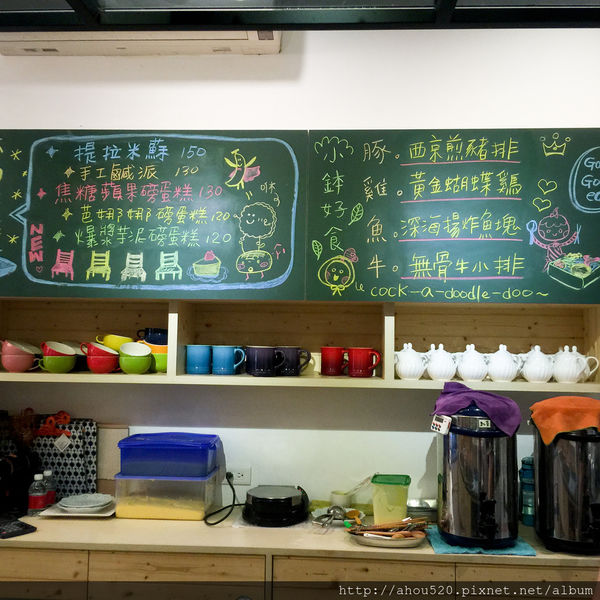 提拉米蘇 150
手工鹹派 130
焦糖蘋果磅蛋糕 130
芭胡胡磅蛋糕 120
爆漿芋泥磅蛋糕 120
NEW
小鉢好食
豚。西京煎豬排
雞。黃金蝴蝶雞
魚。深海揚炸魚塊
牛。無骨牛小排
cock-a-doodle-doo~
http://ahou520.pixnet.net/album